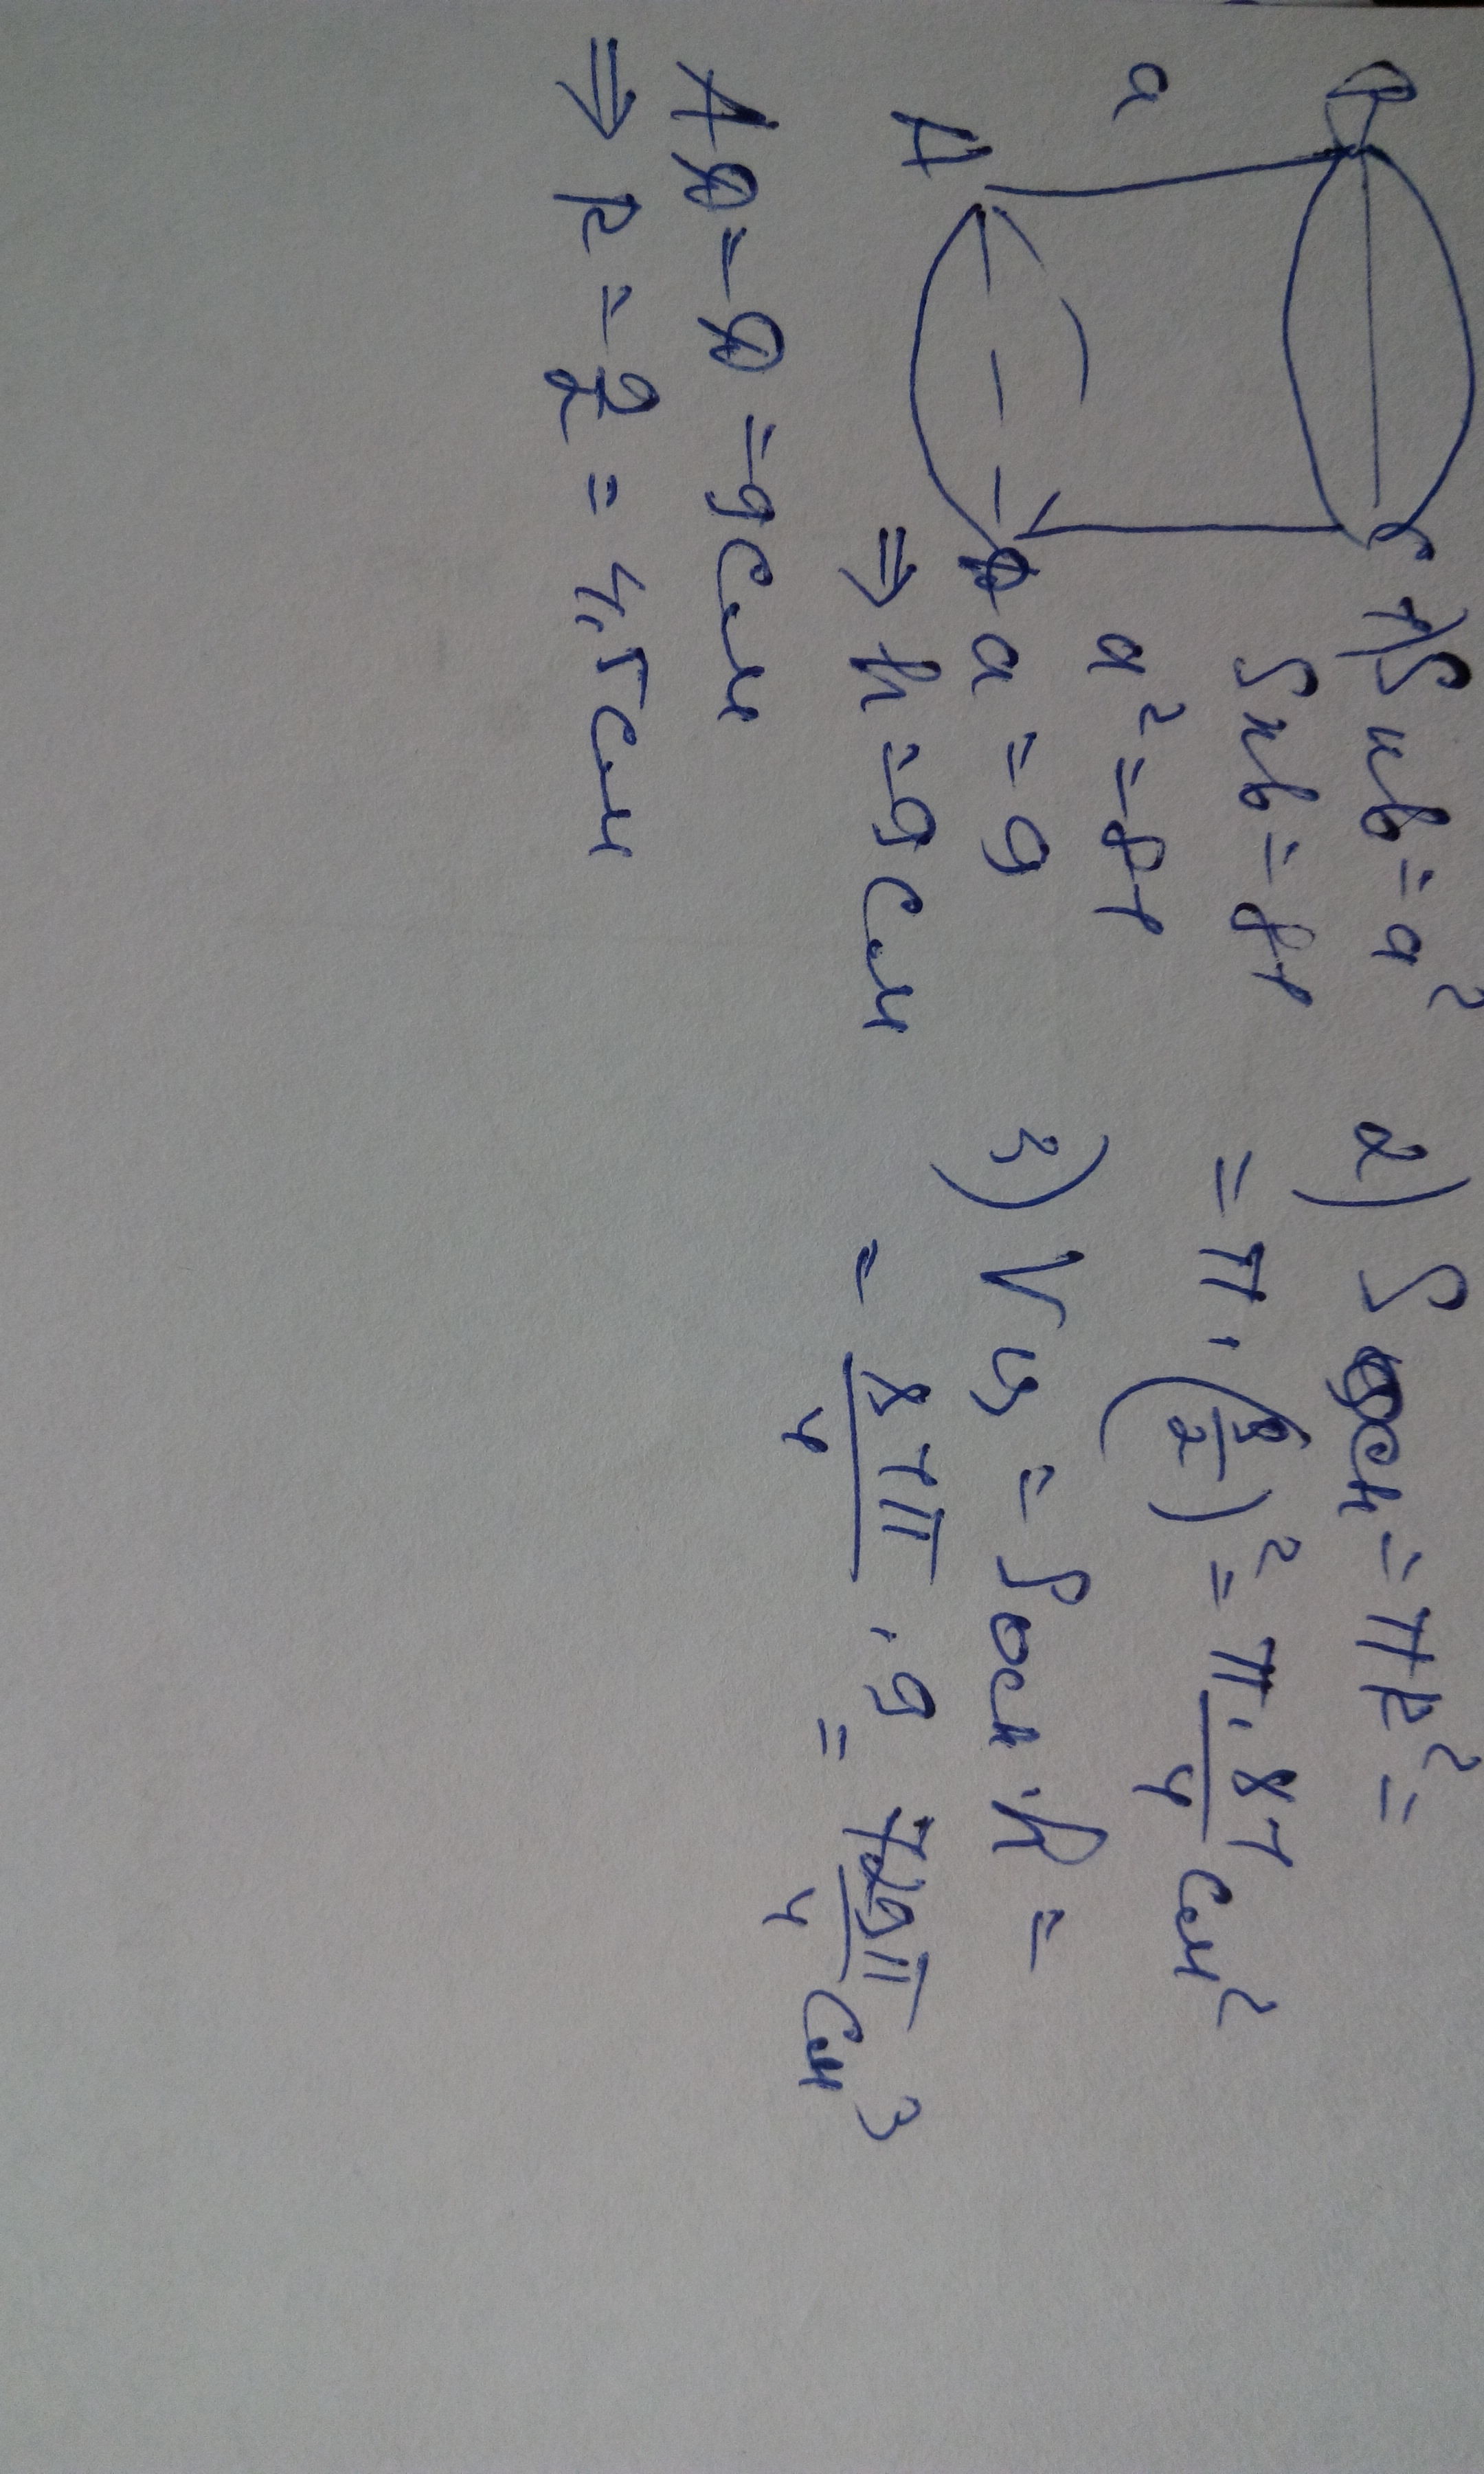 B C
a
A D
1) Sкв = a²
Sкв = 81
a² = 81
a = 9
⇒ h = 9 см
AD = D = 9 см
⇒ R = 2 = 4,5 см
2) Sосн = πR² =
= π · (9/2)² = π · 81/4 см²
3) Vц = Sосн · h =
= 81π/4 · 9 = 729π/4 см³